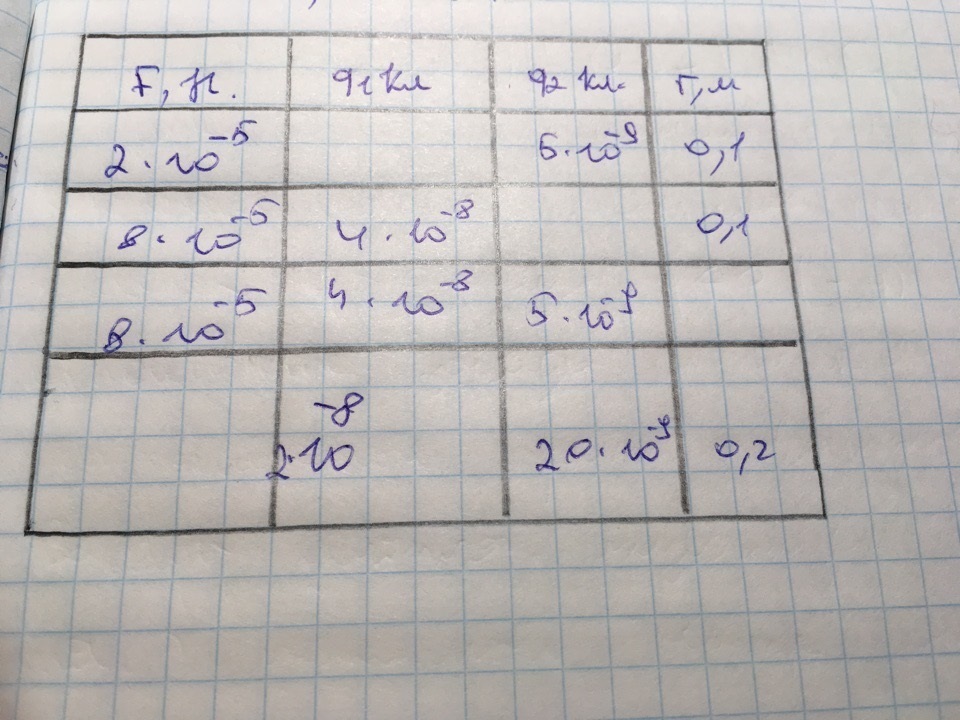 F, Н. q1 Кл q2 Кл. r, м
2·10⁻⁵ 5·10⁻⁹ 0,1
8·10⁻⁵ 4·10⁻⁸ 0,1
8·10⁻⁵ 4·10⁻⁸ 5·10⁻⁹
2·10⁻⁸ 20·10⁻⁹ 0,2